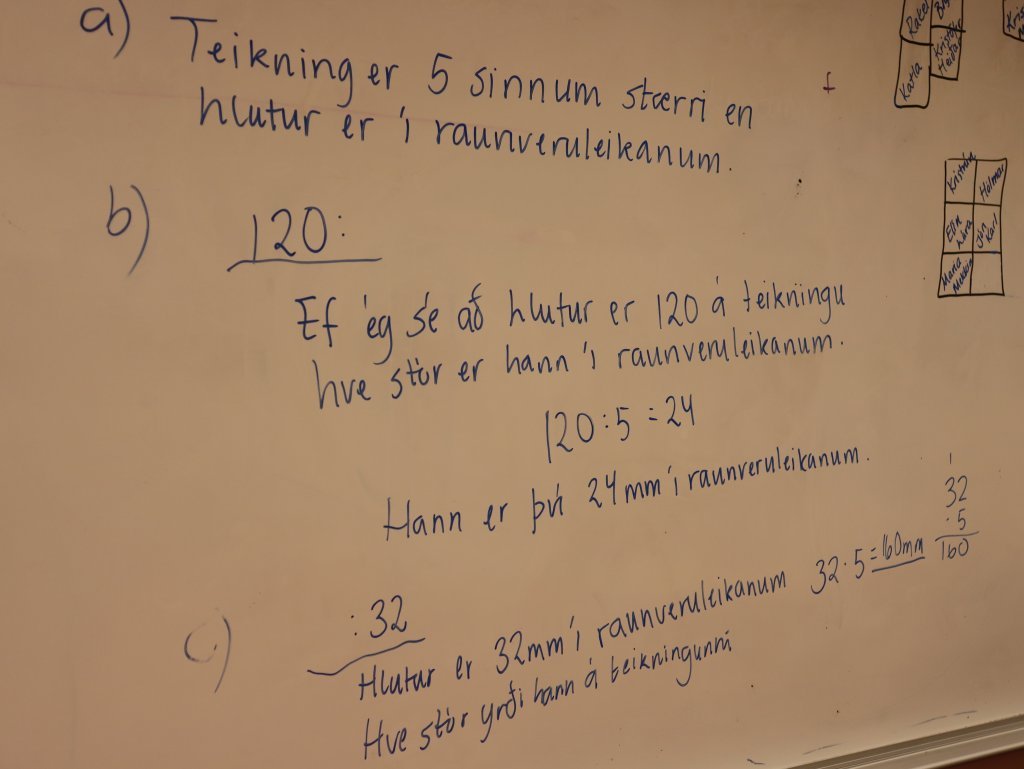 a) Teikning er 5 sinnum stærri en
hlutur er í raunveruleikanum.
b) 120:
Ef ég sé að hlutur er 120 á teikningu
hve stór er hann í raunveruleikanum.
120:5 = 24
Hann er því 24mm í raunveruleikanum.
c) :32
Hlutur er 32mm í raunveruleikanum 32·5=160mm
Hve stór yrði hann á teikningunni
1
32
·5
160
Rakel
Karla
Kristófer
Hólmar
Elín
Lára
Jón
Karl
María